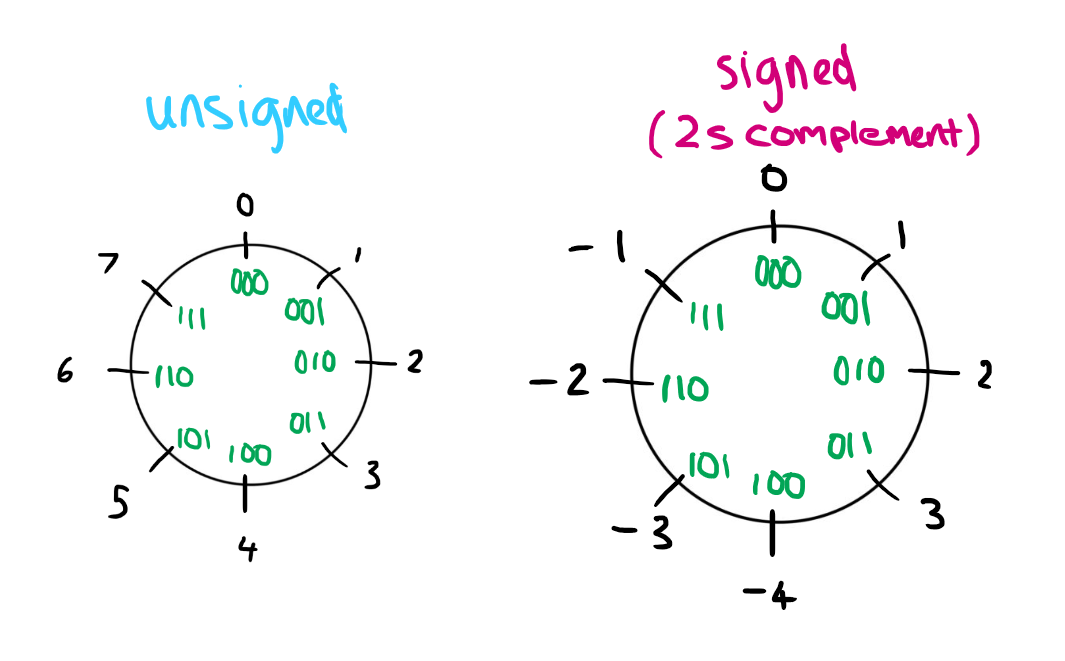 unsigned
0
000
1
001
2
010
3
011
4
100
5
101
6
110
7
111
signed
(2s complement)
0
000
1
001
2
010
3
011
-4
100
-3
101
-2
110
-1
111